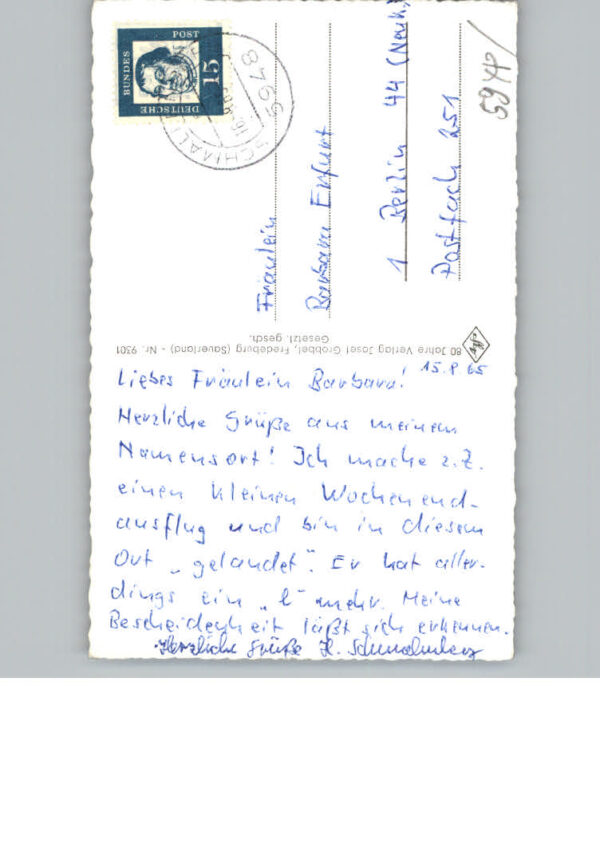 Liebes Fräulein Barbara! 15.8.65
Herzliche Grüße aus meinem
Namensort! Ich mache z.Z.
einen kleinen Wochenend-
ausflug und bin in diesem
Ort „gelandet". Er hat aller-
dings ein „l" mehr. Meine
Bescheidenheit läßt sich erkennen.
Herzliche Grüße H.
80 Jahre Verlag Josef Grobbel, Fredeburg (Sauerland) - Nr. 9301
Gesetzl. gesch.
Agfa
Fräulein
Barbara Erfurt
1 Berlin 44 (Neuk.)
Postfach 251
DEUTSCHE
BUNDES
POST
15
5948